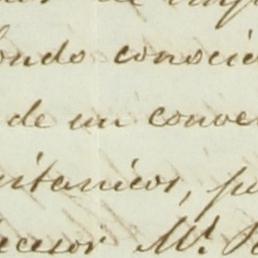 ondo conocie
de un conve
itanicos, pe
cesor Mr.